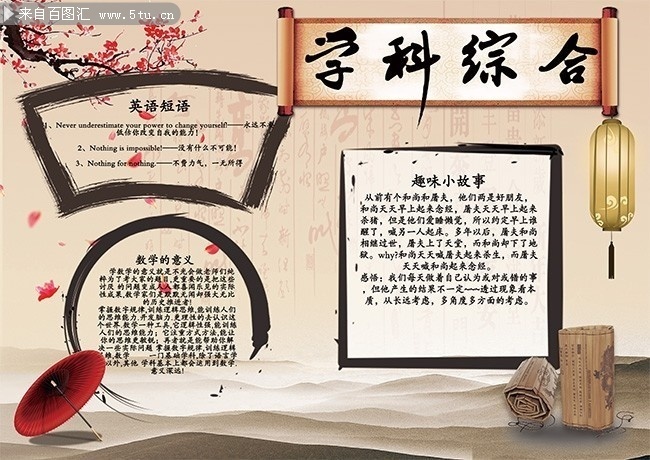 来自百图汇 www.5tu.cn
学科综合
英语短语
1、Never underestimate your power to change yourself!——永远不要
低估你改变自我的能力!
2、Nothing is impossible!——没有什么不可能!
3、Nothing for nothing.——不费力气，一无所得
趣味小故事
从前有个和尚和屠夫，他们两是好朋友，
和尚天天早上起来念经，屠夫天天早上起来
杀猪，但是他们爱睡懒觉，所以约定早上谁
醒了，喊另一人起床。多年以后，屠夫和尚
相继过世，屠夫上了天堂，而和尚却下了地
狱。why?和尚天天喊屠夫起来杀生，而屠夫
天天喊和尚起来念经。
感悟：我们每天做着自己认为或对或错的事
，但他产生的结果不一定~~~透过现象看本
质，从长远考虑，多角度多方面的考虑。
数学的意义
学数学的意义就是不光会做老师们纯
粹为了考大家的题目,更重要的是把这些
讨厌 的问题变成人人都喜闻乐见的实际
性成果,数学家们是默默无闻却强大无比
的历史推进者!
掌握数学规律,训练逻辑思维能,训练人们
的思维能力,开发脑力,更理性的去认识这
个世界.数学一种工具,它逻辑性强,能训练
人们的思维能力；它注重方式方法,能让
你的思维更敏锐；再者就是能帮助你解
决一些实际问题 掌握数学规律,训练逻辑
思维,数学 一门基础学科,除了语言学
以外,其他 学科基本上都会运用到数学,
意义深远!